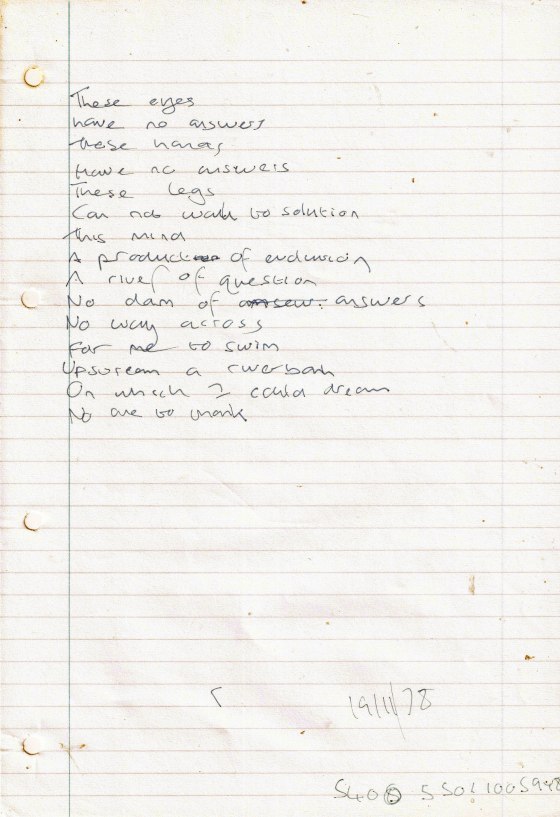 These eyes
have no answers
these hands
Have no answers
These legs
Can not walk to solution
this mind
A product of evolution
A river of question
No dam of answers
No way across
for me to swim
Upstream a riverbank
On which I could dream
No one to thank
19/11/78